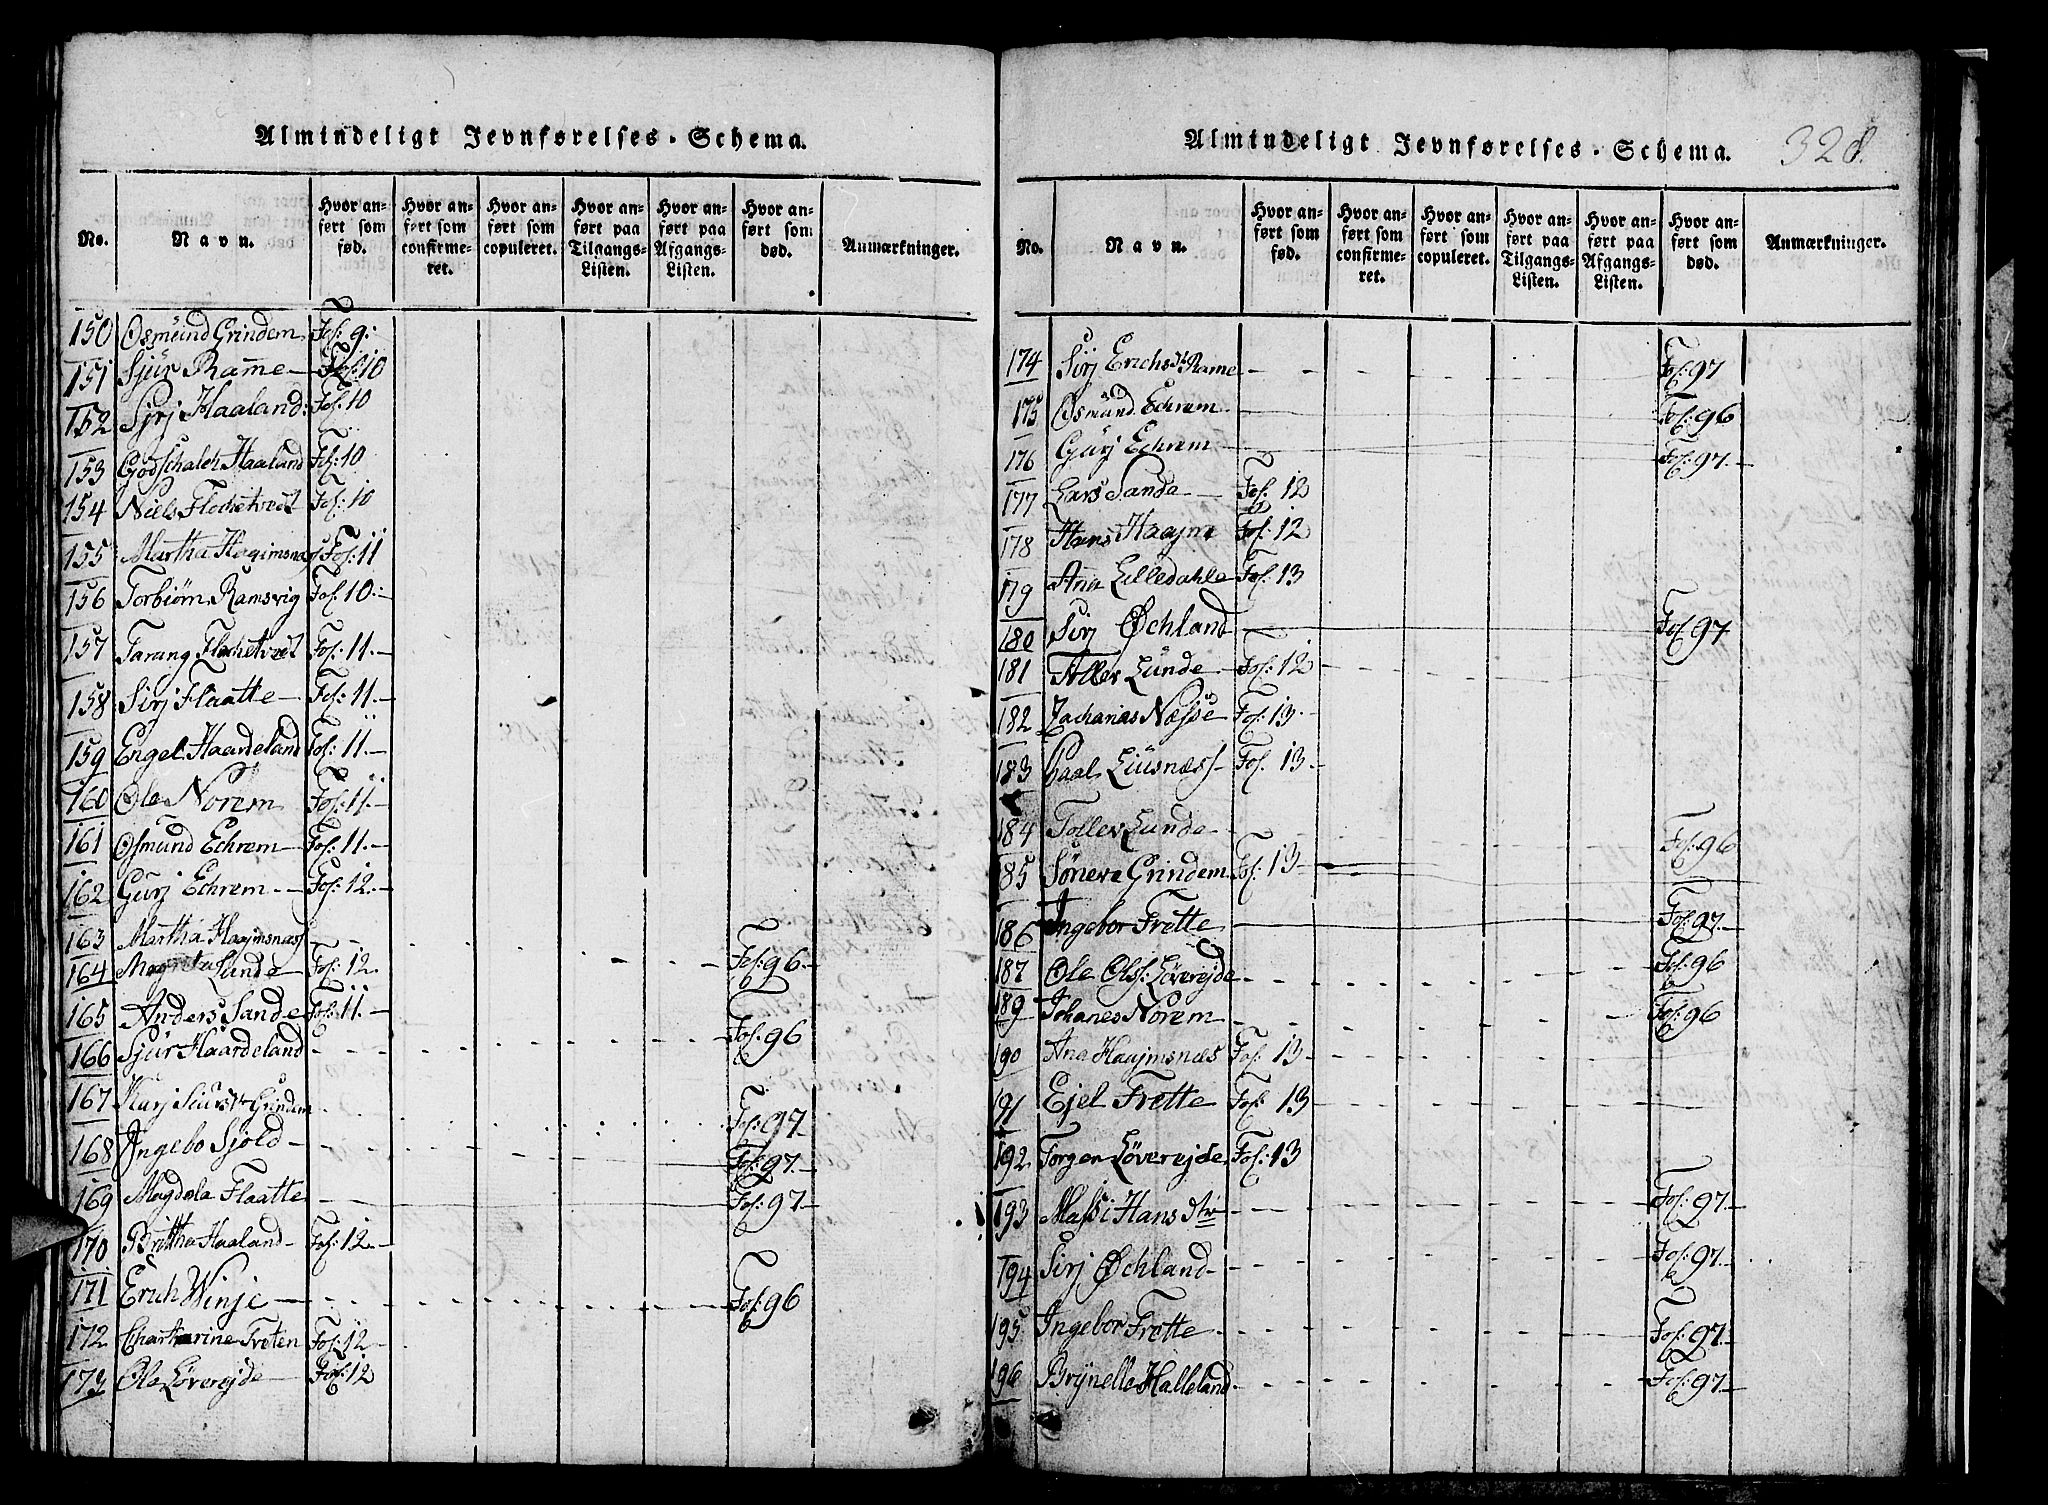 Almindeligt Jevnførelses-Schema.
No. Navn. Hvor anført som fød. Hvor anført som confirmeret. Hvor anført som copuleret. Hvor anført paa Tilgangs-Listen. Hvor anført paa Afgangs-Listen. Hvor anført som død. Anmærkninger.
150 Osmünd Grindem Fol: 9:
151 Sjür Ramme Fol: 10
152 Sjrj Haaland: Fol: 10
153 Godschalch Haaland Fol: 10
154 Niels Flochetvedt Fol: 10
155 Martha Fol: 11
156 Torbiørn Ramsvig Fol: 10
157 Tarang Flochetvedt Fol: 11.
158 Sirj Flaatte Fol: 11.
159 Engel Haardeland Fol: 11.
160 Ole Norem Fol: 11.
161 Osmund Echrem Fol: 11.
162 Gurj Echrem Fol: 12.
163 Martha Haajmsnæss Fol: 96.
164 Lunde Fol: 12.
165 Anders Sande Fol: 11. Fol: 96
166 Sjür Haardeland
167 Karj Grindem Fol: 97
168 Ingebo Sjold Fol: 97.
169 Magdela Flaatte Fol: 97
170 Brittha Haaland Fol: 12.
171 Erich Winje Fol: 96
172 Chartarine Treten Fol: 12
173 Ole Løverejde Fol: 12
Almindeligt Jevnførelses-Schema. 328.
No. Navn. Hvor anført som fød. Hvor anført som confirmeret. Hvor anført som copuleret. Hvor anført paa Tilgangs-Listen. Hvor anført paa Afgangs-Listen. Hvor anført som død. Anmærkninger.
174 Sirj Erichsdt Rame Fol: 97
175 Osmünd Echrem Fol: 96
176 Gürj Echrem Fol: 97.
177 Lars Sande Fol: 12
178 Hans Fol: 12
179 Ana Lilledahle Fol: 13
180 Sirj Øchland Fol: 97
181 Lünde Fol: 12
182 Zacharias Næsse Fol: 13.
183 Paal Liüsnæss Fol. 13.
184 Toller Lunde Fol: 96
185 Søneva Grindem Fol: 13
186 Ingebor Trette Fol: 97.
187 Ole Ols: Løverejde Fol: 96
189 Johanes Norem Fol: 96
190 Ana Haajmsnæs Fol: 13
191 Ejel Trette Fol: 13
192 Torger Løverejde Fol: 13
193 Hans dtr Fol: 97.
194 Sirj Øchland Fol: 97.
195 Ingebor Trette Fol: 97.
196 Brÿnella Halleland Fol: 97.